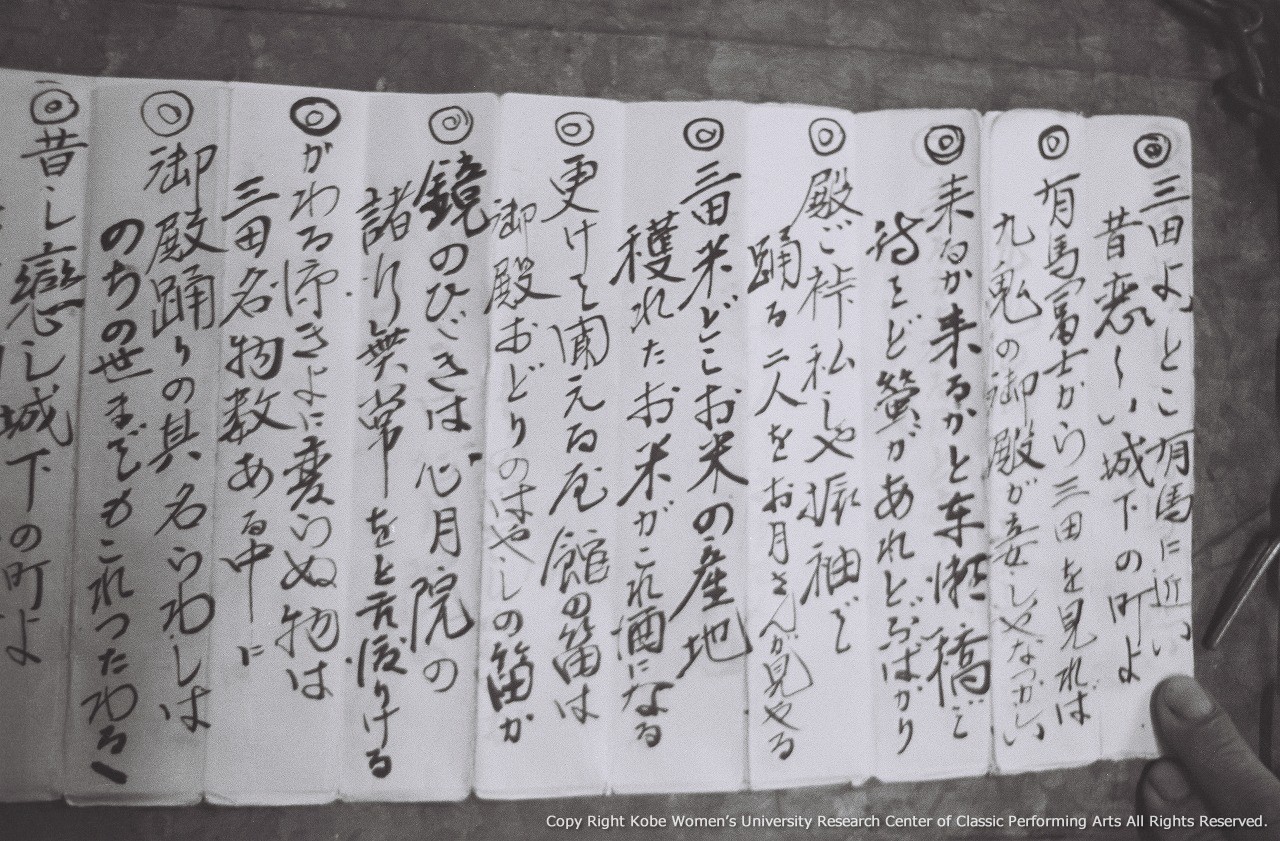 ◎三田よいとこ有馬に近い
昔恋しい城下の町よ
◎有馬富士から三田を見れば
九鬼の御殿が妾しやなつかしい
◎来るか来るかと車瀬橋で
待てど螢があれとぶばかり
◎殿ご裃私しや振袖で
踊る二人をお月さんが見やる
◎三田米どこお米の産地
穫れたお米がこれ酒になる
◎更けて聞える屋館の笛は
御殿おどりのはやしの笛か
◎鏡のひびきは心月院の
諸行無常をと言渡りける
◎がわる浮きよに変らぬ物は
三田名物数ある中に
◎御殿踊りの其名らわしは
のちの世までもこれつたわる
◎昔し戀し城下の町よ
Copy Right Kobe Women's University Research Center of Classic Performing Arts All Rights Reserved.